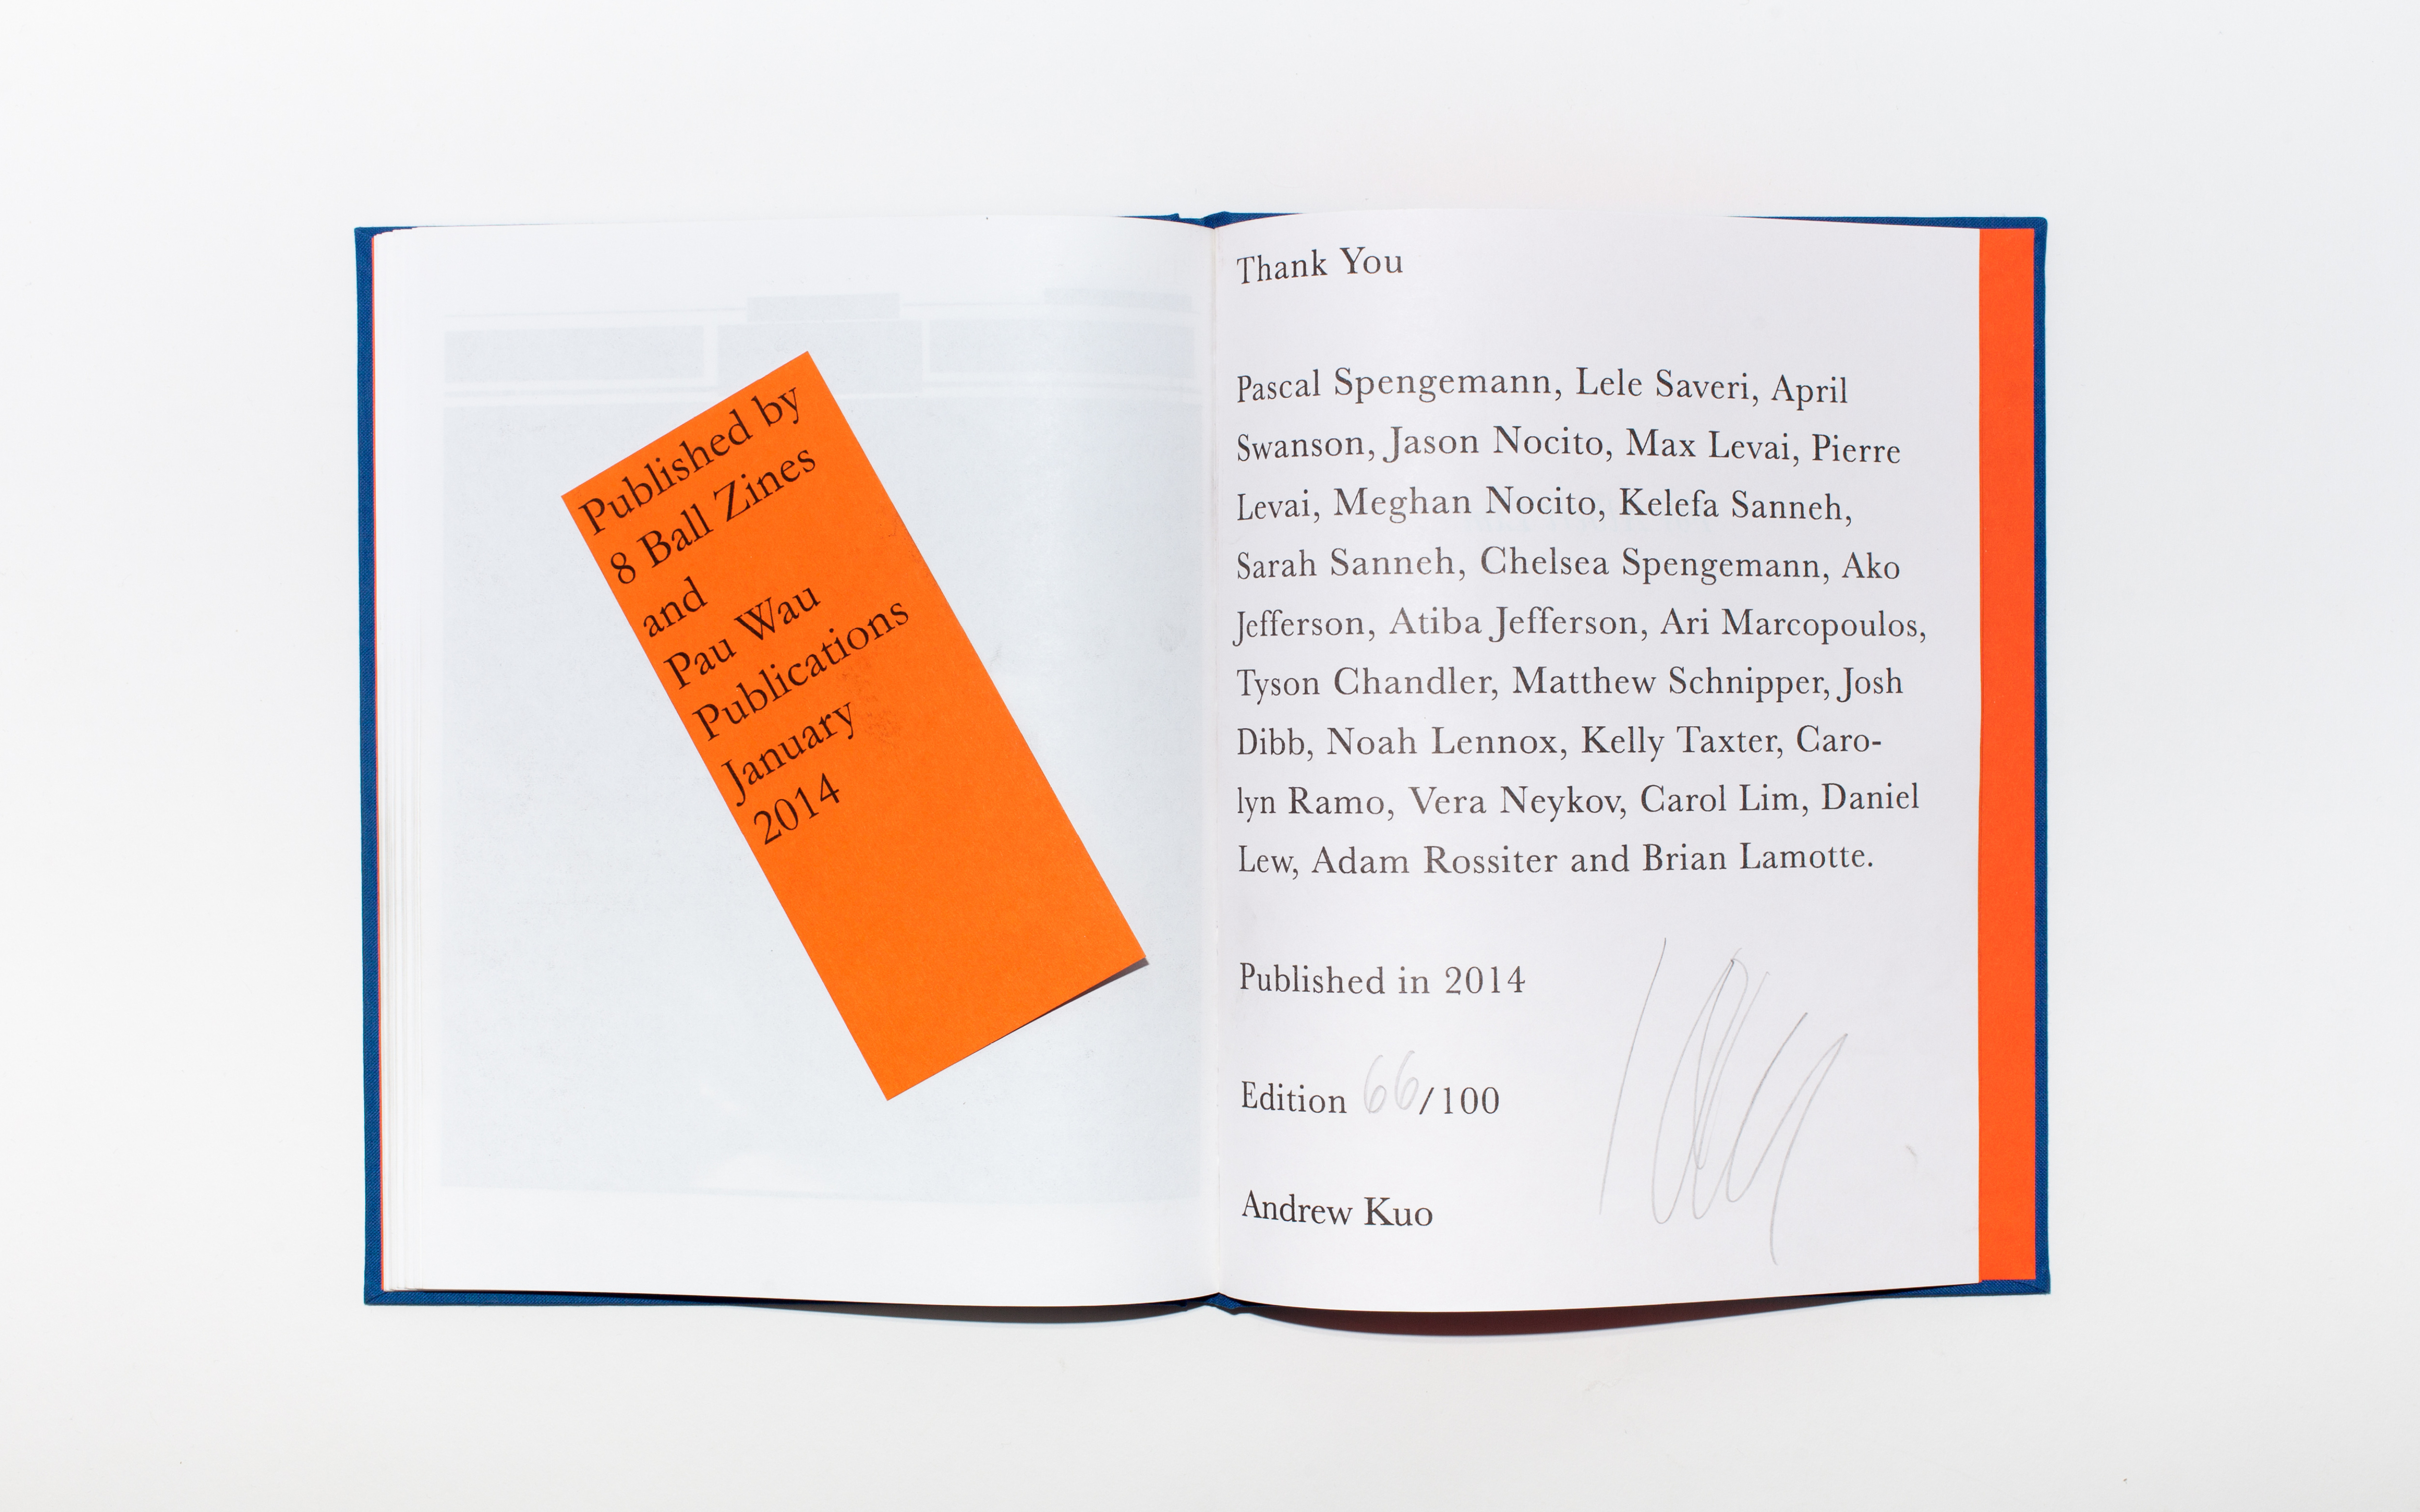 Published by
8 Ball Zines
and
Pau Wau
Publications
January
2014
Thank You
Pascal Spengemann, Lele Saveri, April
Swanson, Jason Nocito, Max Levai, Pierre
Levai, Meghan Nocito, Kelefa Sanneh,
Sarah Sanneh, Chelsea Spengemann, Ako
Jefferson, Atiba Jefferson, Ari Marcopoulos,
Tyson Chandler, Matthew Schnipper, Josh
Dibb, Noah Lennox, Kelly Taxter, Caro-
lyn Ramo, Vera Neykov, Carol Lim, Daniel
Lew, Adam Rossiter and Brian Lamotte.
Published in 2014
Edition 66/100
Andrew Kuo